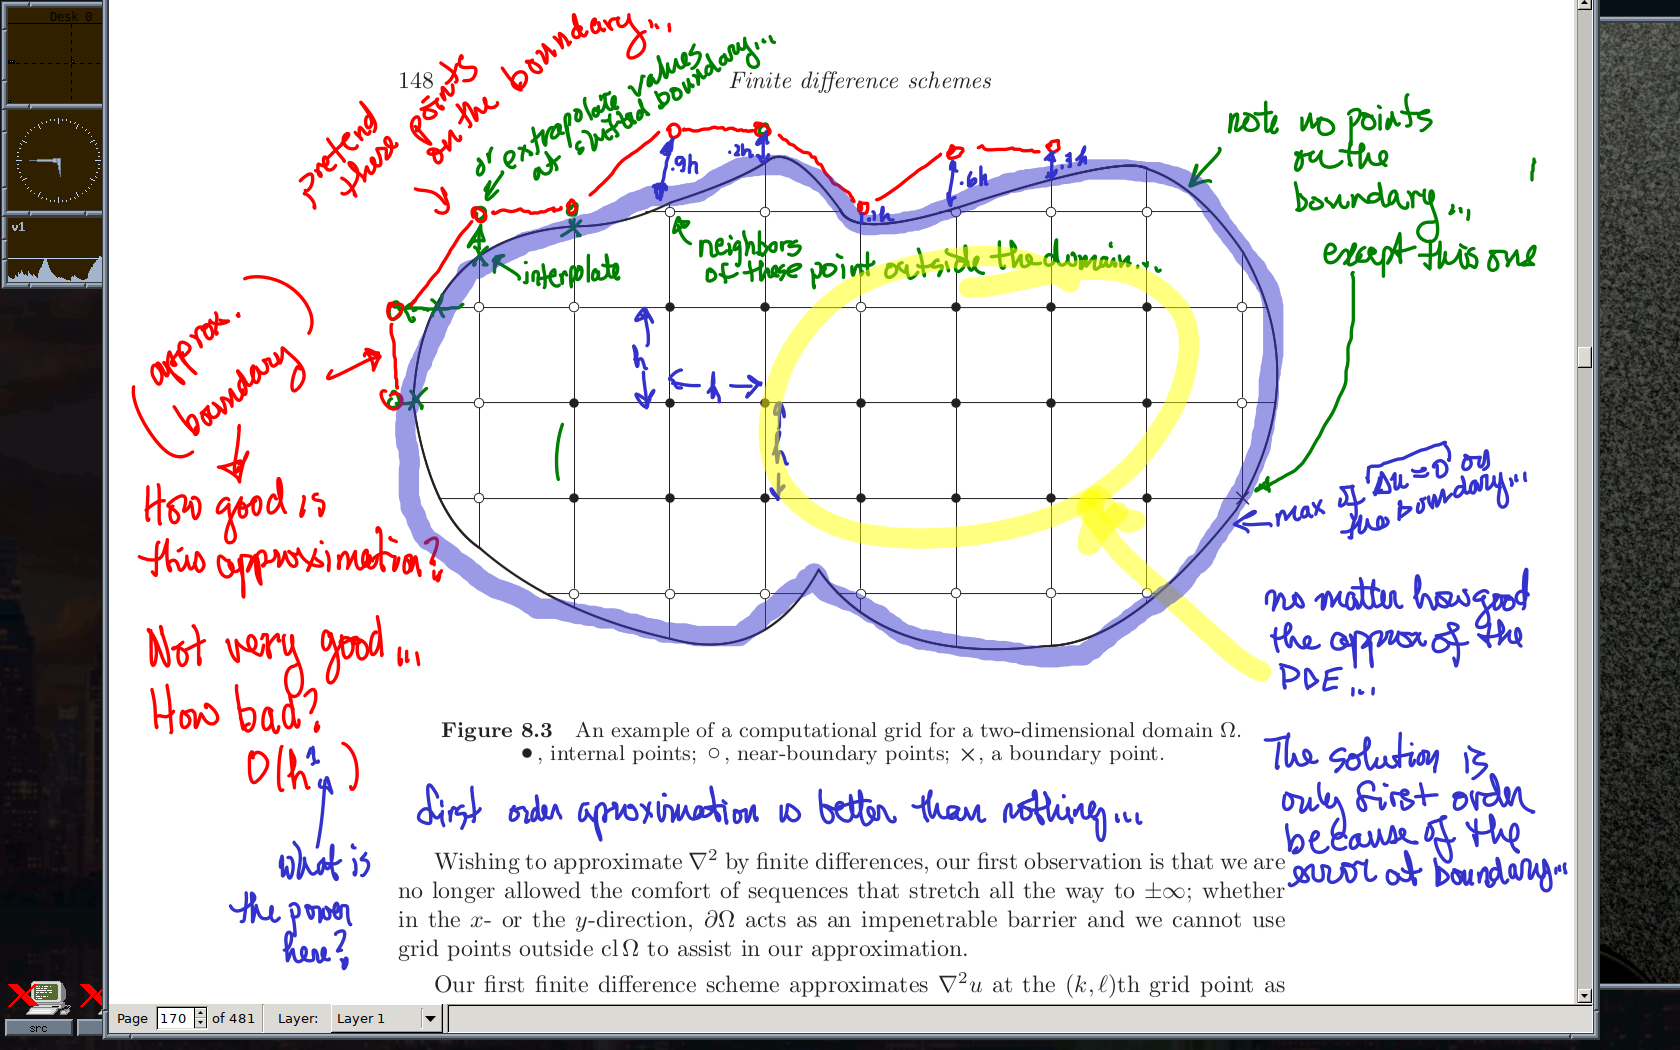 Desk 0
v1
148
Finite difference schemes
pretend
these points
on the boundary...
or extrapolate values
at shifted boundary...
.9h
.2h
.1h
.6h
.3h
note no points
on the
boundary...
except this one
interpolate
neighbors
of these point outside the domain...
h
h
h
approx.
boundary
How good is
this approximation?
Not very good...
How bad?
O(h¹)
what is
the power
here?
max of Δu=0 on
the boundary...
no matter how good
the approx of the
PDE...
The solution is
only first order
because of the
error at boundary...
Figure 8.3 An example of a computational grid for a two-dimensional domain Ω.
●, internal points; ○, near-boundary points; ×, a boundary point.
first order aproximation is better than nothing...
Wishing to approximate ∇² by finite differences, our first observation is that we are
no longer allowed the comfort of sequences that stretch all the way to ±∞; whether
in the x- or the y-direction, ∂Ω acts as an impenetrable barrier and we cannot use
grid points outside cl Ω to assist in our approximation.
Our first finite difference scheme approximates ∇²u at the (k, ℓ)th grid point as
src
Page 170 of 481 Layer: Layer 1